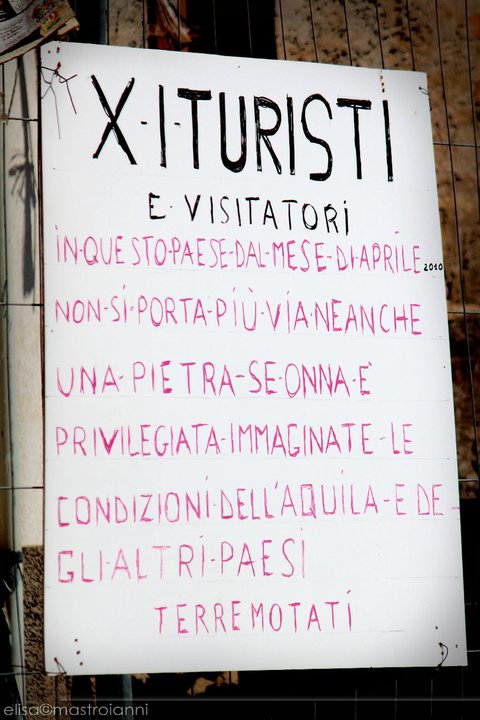 X·I·TURISTI
E·VISITATORI
IN·QUESTO·PAESE·DAL·MESE·DI·APRILE 2010
NON·SI·PORTA·PIÙ·VIA·NEANCHE
UNA·PIETRA-SE·ONNA·È
PRIVILEGIATA·IMMAGINATE-LE
CONDIZIONI·DELL'AQUILA-E DE-
GLI·ALTRI·PAESI
TERREMOTATI
elisa©mastroianni